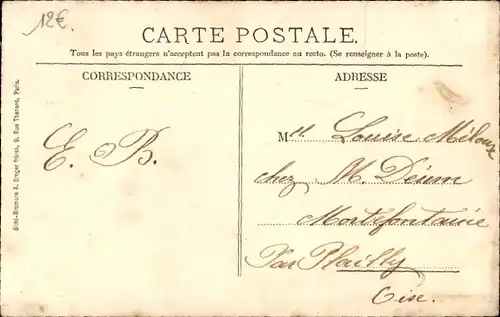 12€
CARTE POSTALE.
Tous les pays étrangers n'acceptent pas la correspondance au recto. (Se renseigner à la poste).
CORRESPONDANCE
ADRESSE
Simi-Bromure A. Breger frères, 9, Rue Thénard, Paris.
E. B.
Mell Louise Méloux
chez M. Déum
Mortefontaine
Par Plailly
Oise.